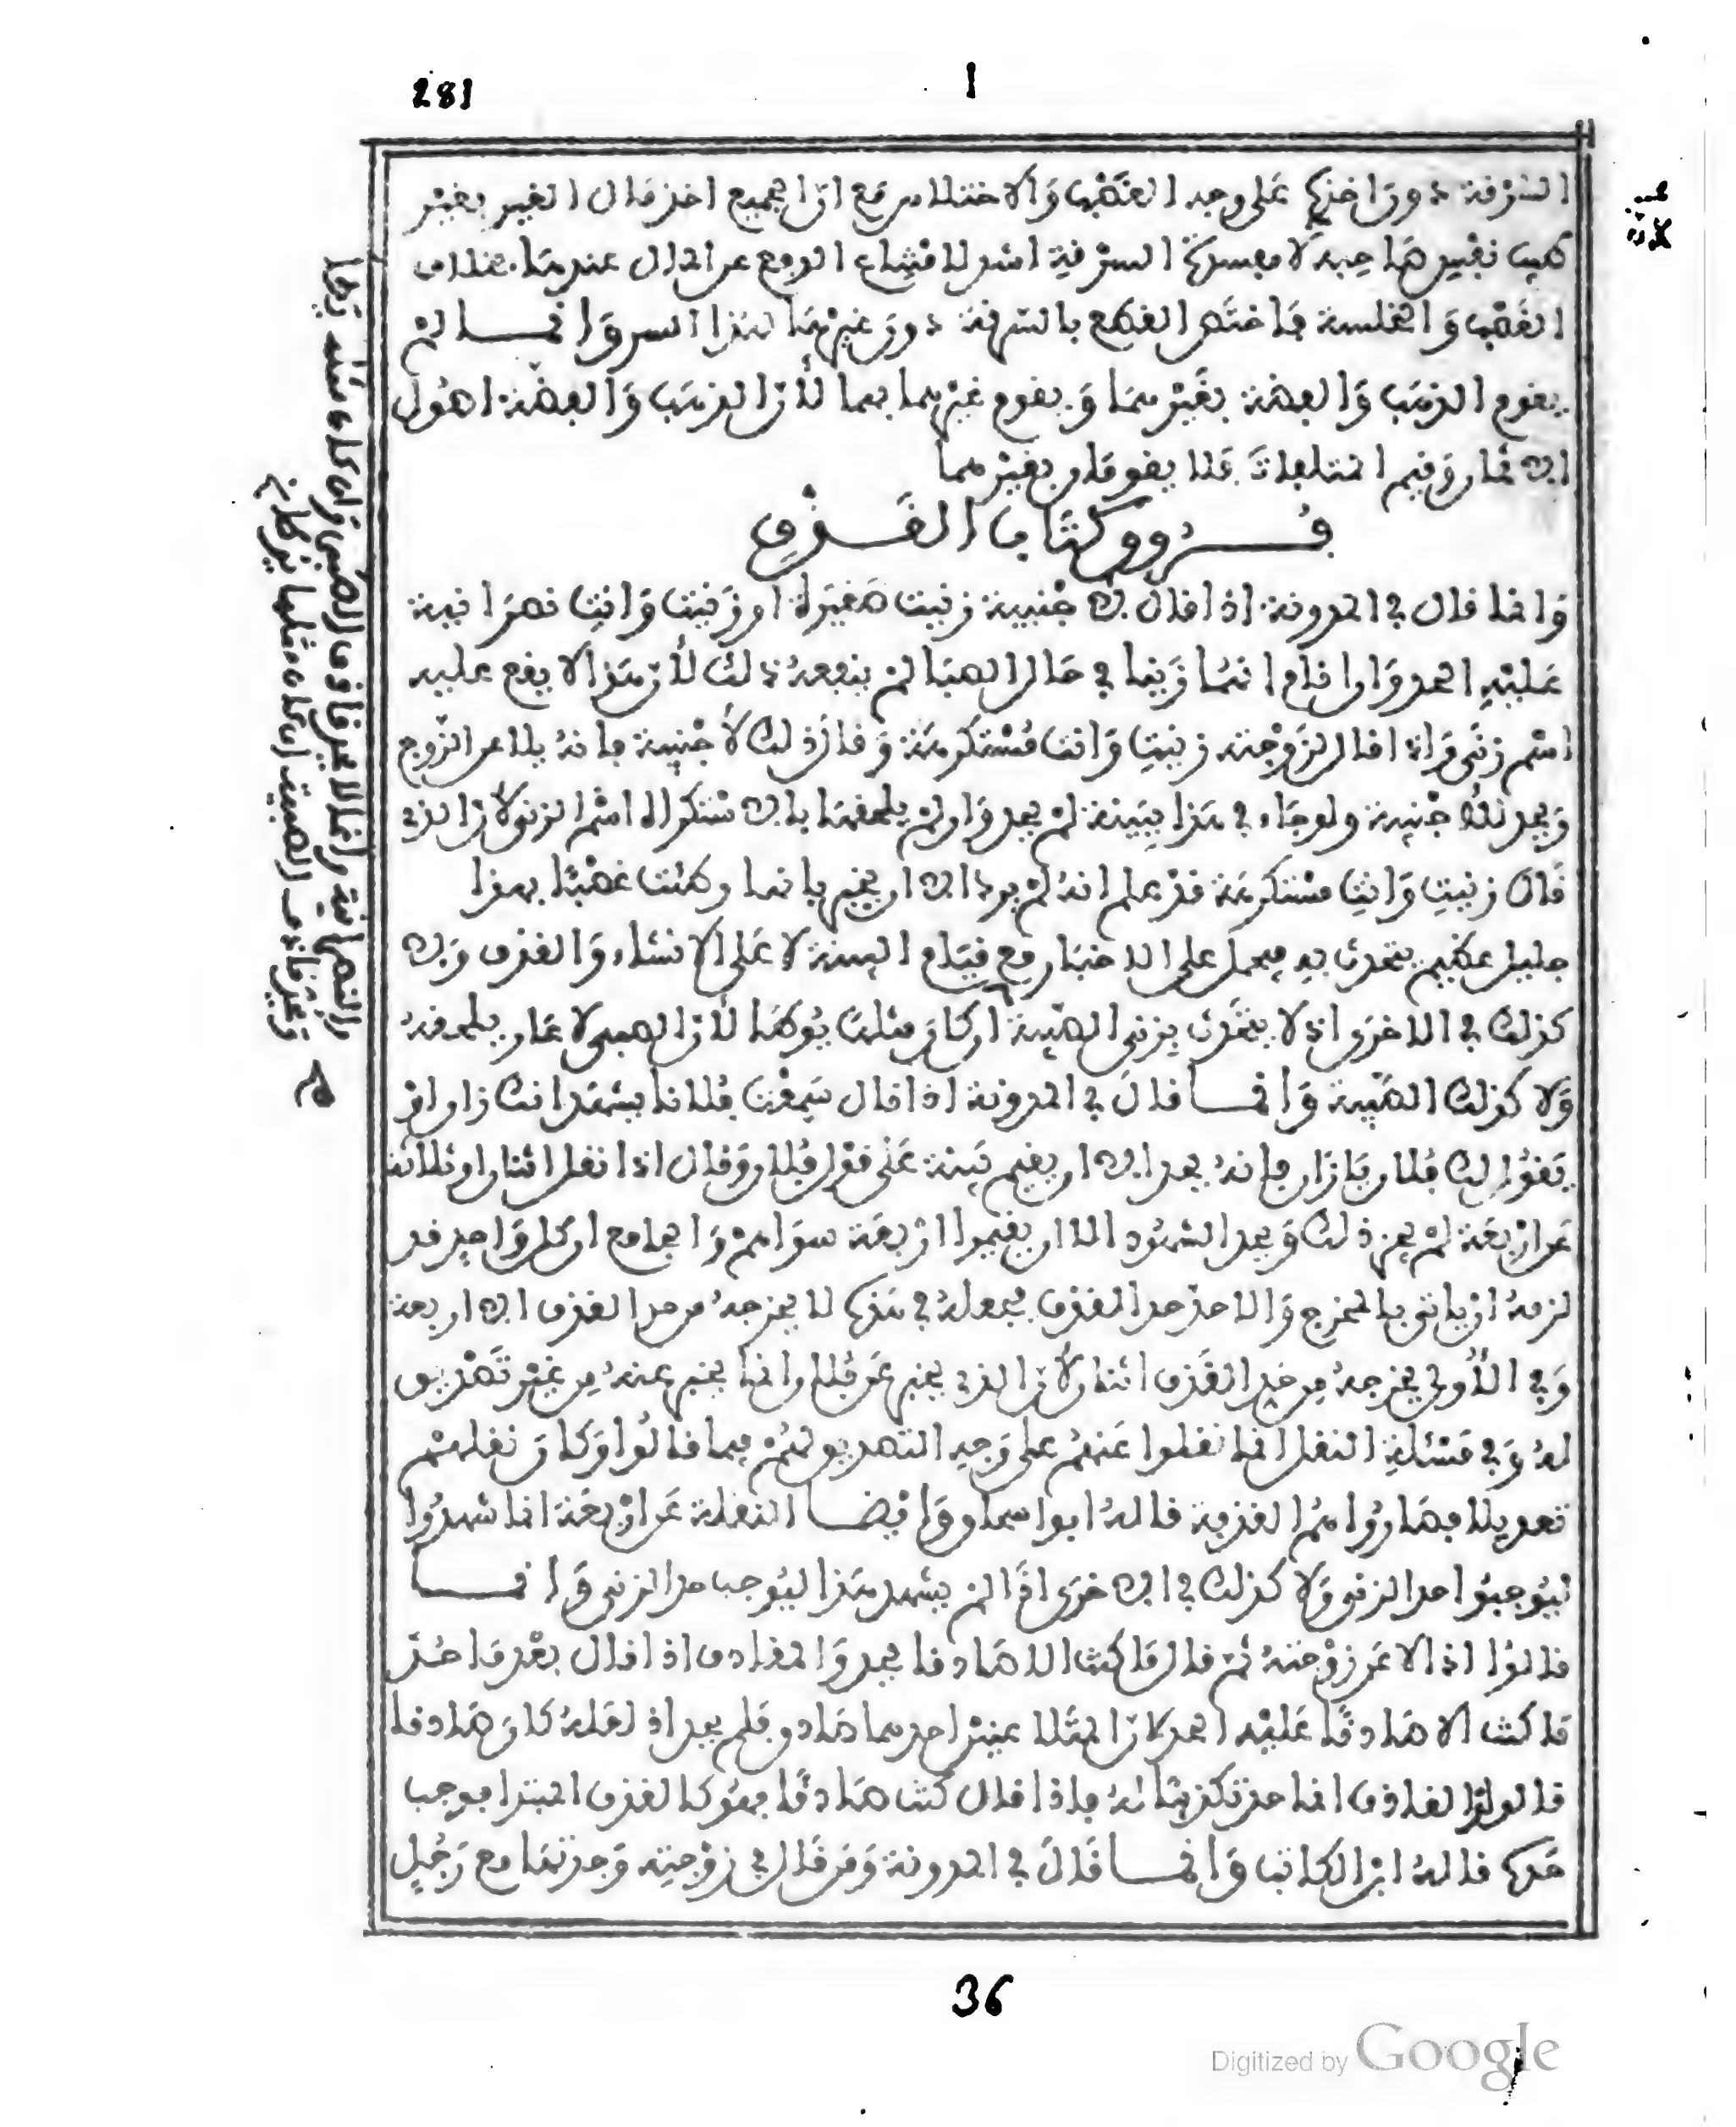 281
السرقة دون اخذه على وجه الغصب والاختلاس مع ان الجميع اخذ مال الغير بغير
طيب نفس صاحبه لان مفسدة السرقة اشد لامتناع الدفع عن المال عندها بخلاف
الغصب والخلسة فاختص القطع بالسرقة دون غيرها لهذا السر وانما لم
يقوم الذهب والفضة بغيرهما ويقوم غيرهما بهما لان الذهب والفضة اصول
الاثمان وقيم المتلفات فلا يقومان بغيرهما
فروق كتاب القذف
وانما قال في المدونة اذا قال لاجنبية زنيت صغيرة او زنيت وانت نصرانية
عليه الحد وان اقام انها زنيا في حال الصبا لم ينفعه ذلك لان هذا لا يقع عليه
اسم زنى واذا قال لزوجته زنيت وانت مستكرهة وقال ذلك لاجنبية فانه يلاعن الزوج
ويحد للاجنبية ولو جاء في هذا ببينة لم يحد وان لم يلحقها بالاستكراه اسم الزنى لان الذي
قال زنيت وانت مستكرهة قد علم انه لم يرد الا ان يخبر بانها وطئت غصبا بهذا
جليل عظيم يتحدث به فيحمل على الاخبار مع قيام البينة لا على الانشاء والقذف ولا
كذلك في الاخرى اذ لا يتحدث بزنى الصبية ان كان مثلها يوطا لان الصبي لا عار يلحقه
ولا كذلك الصبية وانما قال في المدونة اذا قال سمعت فلانا يشهد انك زان او
يقول لك فلان يا زان فانه يحد الا ان يقيم بينة على قول فلان وقال اذا نقل اثنان او ثلاثة
عن اربعة لم يجز ذلك ويحد الشهود الا ان يقيموا اربعة سواهم والجامع ان كل واحد قد
لزمه ان ياتي بالمخرج والا حد حد القذف فجعله في هذه لا يخرجه من حد القذف الا اربعة
وفي الاولى يخرجه من حد القذف اثنان لان الذي يخبر عن فلان انما يخبر عنه من غير تصديق
له وفي مسئلة النقل انما نقلوا عنهم على وجه التصديق لهم فيما قالوا وكان نقلهم
تعديلا فصاروا هم القذفة قاله ابو اسحاق وايضا النقلة عن اربعة انما شهدوا
ليوجبوا حد الزنى ولا كذلك في الاخرى اذ لم يشهد هذا ليوجب حد الزنى وانما
قالوا اذا لاعن زوجته ثم قال ما كنت الا صادقا يحد والقاذف اذا قال بعد ما حد
ما كنت الا صادقا عليه الحد لان المتلاعنين احدهما صادق فلم يحد اذ لعله كان صادقا
قالوا القاذف انما حد تكذيبا له فاذا قال كنت صادقا فهو كالقذف المبتدا فوجب
حده قاله ابن الكاتب وانما قال في المدونة ومن قال في زوجته وجدتها مع رجل
36
Digitized by Google